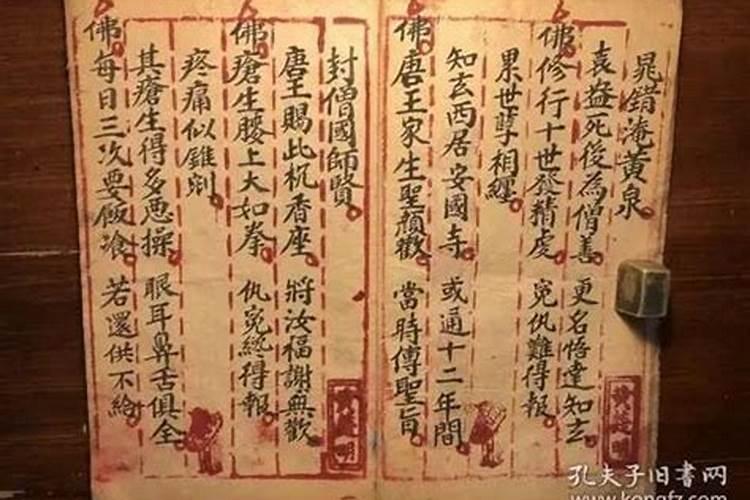 晁錯淹黄泉
袁盎死後為僧善 更名悟達知玄
佛修行十世發精虔 冤仇難得報
累世孽相纏
知玄西居安國寺 或通十二年間
佛唐王家生聖顏歡 當時傳聖旨
封僧國師賢
唐王賜此杋香座 將汝福謝無歡
佛瘡生腰上大如拳 仇冤終得報
疼痛似錐剜
其瘡生得多惡操 眼耳鼻舌俱全
佛每日三次要飯飡 若還供不給
孔夫子旧书网